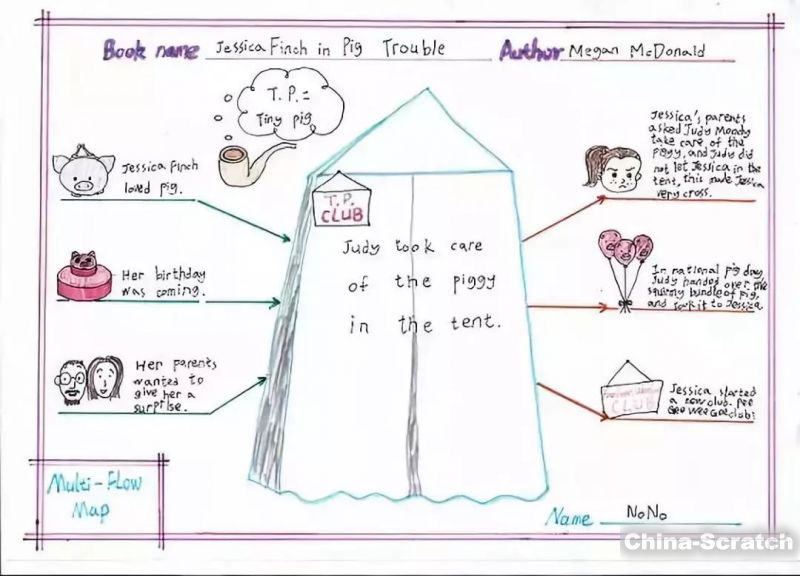 Book name Jessica Finch in Pig Trouble Author Megan McDonald
T.P. =
Tiny pig
Jessica Finch
loved pig.
Her birthday
was coming.
Her parents
wanted to
give her a
surprise.
T.P.
CLUB
Judy took care
of the piggy
in the tent.
Jessica's parents
asked Judy Moody
take care of the
piggy, and Judy did
not let Jessica in the
tent, this made Jessica
very cross.
In national pig day,
Judy handed over the
squirmy bundle of pig,
and took it to Jessica
CLUB
Jessica started
a new club. Pee
Gee Wee Gee club!
Multi-Flow
Map
Name NoNo
China-Scratch